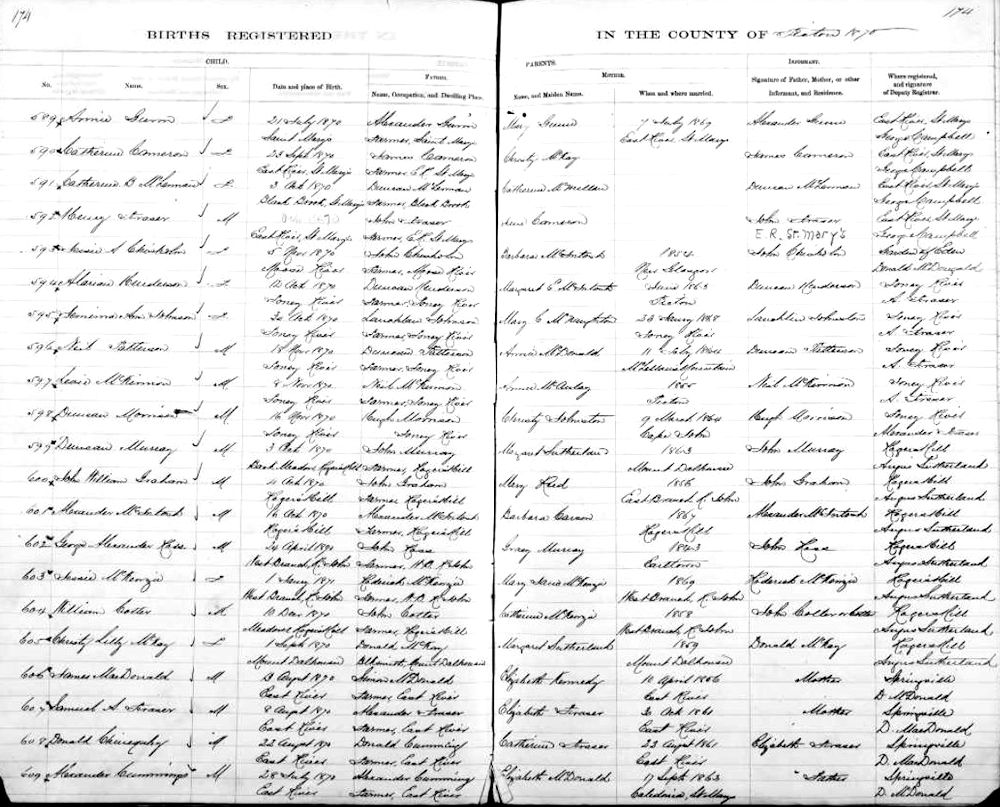 174
174
BIRTHS REGISTERED
IN THE COUNTY OF Pictou 1870
CHILD.
PARENTS.
INFORMANT.
FATHER.
MOTHER.
No.
Name.
Sex.
Date and place of Birth.
Name, Occupation, and Dwelling Place.
Name, and Maiden Name.
When and where married.
Signature of Father, Mother, or other Informant, and Residence.
Where registered, and signature of Deputy Registrar.
589 Annie 21 July 1870 Alexander Mary 7 July 1869 Alexander East River, St. Mary
Saint Marys Farmer, Saint Marys East River, St Marys George Campbell
590 Catherine Cameron 23 Sept 1870 James Cameron Christy McKay James Cameron East River, St. Mary
East River, St Marys Farmer, E.R. St Marys George Campbell
591 Catherine B McLennan 3 Oct 1870 Duncan McLennan Catherine McMillan Duncan McLennan East River, St Marys
Black Brook, St Marys Farmer, Black Brook George Campbell
592 Henry Fraser M John Fraser Cameron John Fraser East River, St Mary
East River, St Marys Farmer, E.R. St Marys E.R. St. Mary's George Campbell
593 Jessie A Chisholm 5 Nov 1870 John Chisholm Barbara McIntosh 1854 John Chisholm Garden of Eden
Moose River Farmer, Moose River New Glasgow Donald McDougald
594 Marion Henderson 12 Oct 1870 Duncan Henderson Margaret McIntosh June 1863 Duncan Henderson Toney River
Toney River Farmer, Toney River Pictou A Fraser
595 Jemima Ann Johnson 20 Oct 1870 Lauchlan Johnson Mary C McNaughton 22 1868 Lauchlan Johnston Toney River
Toney River Farmer, Toney River Toney River A Fraser
596 Neil Patterson M 18 Nov 1870 Duncan Patterson Annie McDonald 11 July 1864 Duncan Patterson Toney River
Toney River Farmer, Toney River McLellans Mountain A Fraser
597 McKinnon M 8 Nov 1870 Neil McKinnon McAulay Neil McKinnon Toney River
Toney River Farmer, Toney River Pictou A Fraser
598 Duncan Morrison M 16 Nov 1870 Hugh Morrison Christy Johnston 9 March 1864 Hugh Morrison Toney River
Toney River Toney River Cape John Alexander Fraser
599 Duncan Murray M 3 Oct 1870 John Murray Margaret Sutherland 1863 John Murray Rogers Hill
Back Meadows, Rogers Hill Farmer, Rogers Hill Mount Dalhousie Angus Sutherland
600 John William Graham M 4 Oct 1870 John Graham Mary Reid 1856 John Graham Rogers Hill
Rogers Hill Farmer, Rogers Hill East Branch R. John Angus Sutherland
601 Alexander McIntosh M 16 Oct 1870 Alexander McIntosh Barbara Carson 1867 Alexander McIntosh Rogers Hill
Rogers Hill Farmer, Rogers Hill Rogers Hill Angus Sutherland
602 George Alexander Ross M 24 April 1870 John Ross Murray 1843 John Ross Rogers Hill
West Branch, R. John Farmer, W.B. R. John Earltown Angus Sutherland
603 Jessie McKenzie 1 Jany 1871 Roderick McKenzie Mary McKenzie 1869 Roderick McKenzie Rogers Hill
West Branch, R. John Farmer, W.B. R. John West Branch, R. John Angus Sutherland
604 William Colter M 10 1870 John Colter Catherine McKenzie 1858 John Colter or Rogers Hill
Meadows Rogers Hill Farmer, Rogers Hill West Branch, R. John Angus Sutherland
605 Christy Lilly McKay 1 Sept 1870 Donald McKay Margaret Sutherland 1859 Donald McKay Rogers Hill
Mount Dalhousie Blksmith, Mount Dalhousie Mount Dalhousie Angus Sutherland
606 James MacDonald M 3 August 1870 Simon McDonald Elizabeth Kennedy 10 April 1856 Mother Springville
East River Farmer, East River East River D McDonald
607 Samuel A Fraser M 8 August 1870 Alexander Fraser Elizabeth Fraser 3 Oct 1861 Mother Springville
East River Farmer, East River East River D. MacDonald
608 Donald Chiniquy M 22 August 1870 Donald Cumming Catherine Fraser 23 August 1861 Elizabeth Fraser Springville
East River Farmer, East River East River D. MacDonald
609 Alexander Cummings M 28 July 1870 Alexander Cumming Elizabeth McDonald 17 Sept 1863 Father Springville
East River Farmer, East River Caledonia, St Marys D McDonald